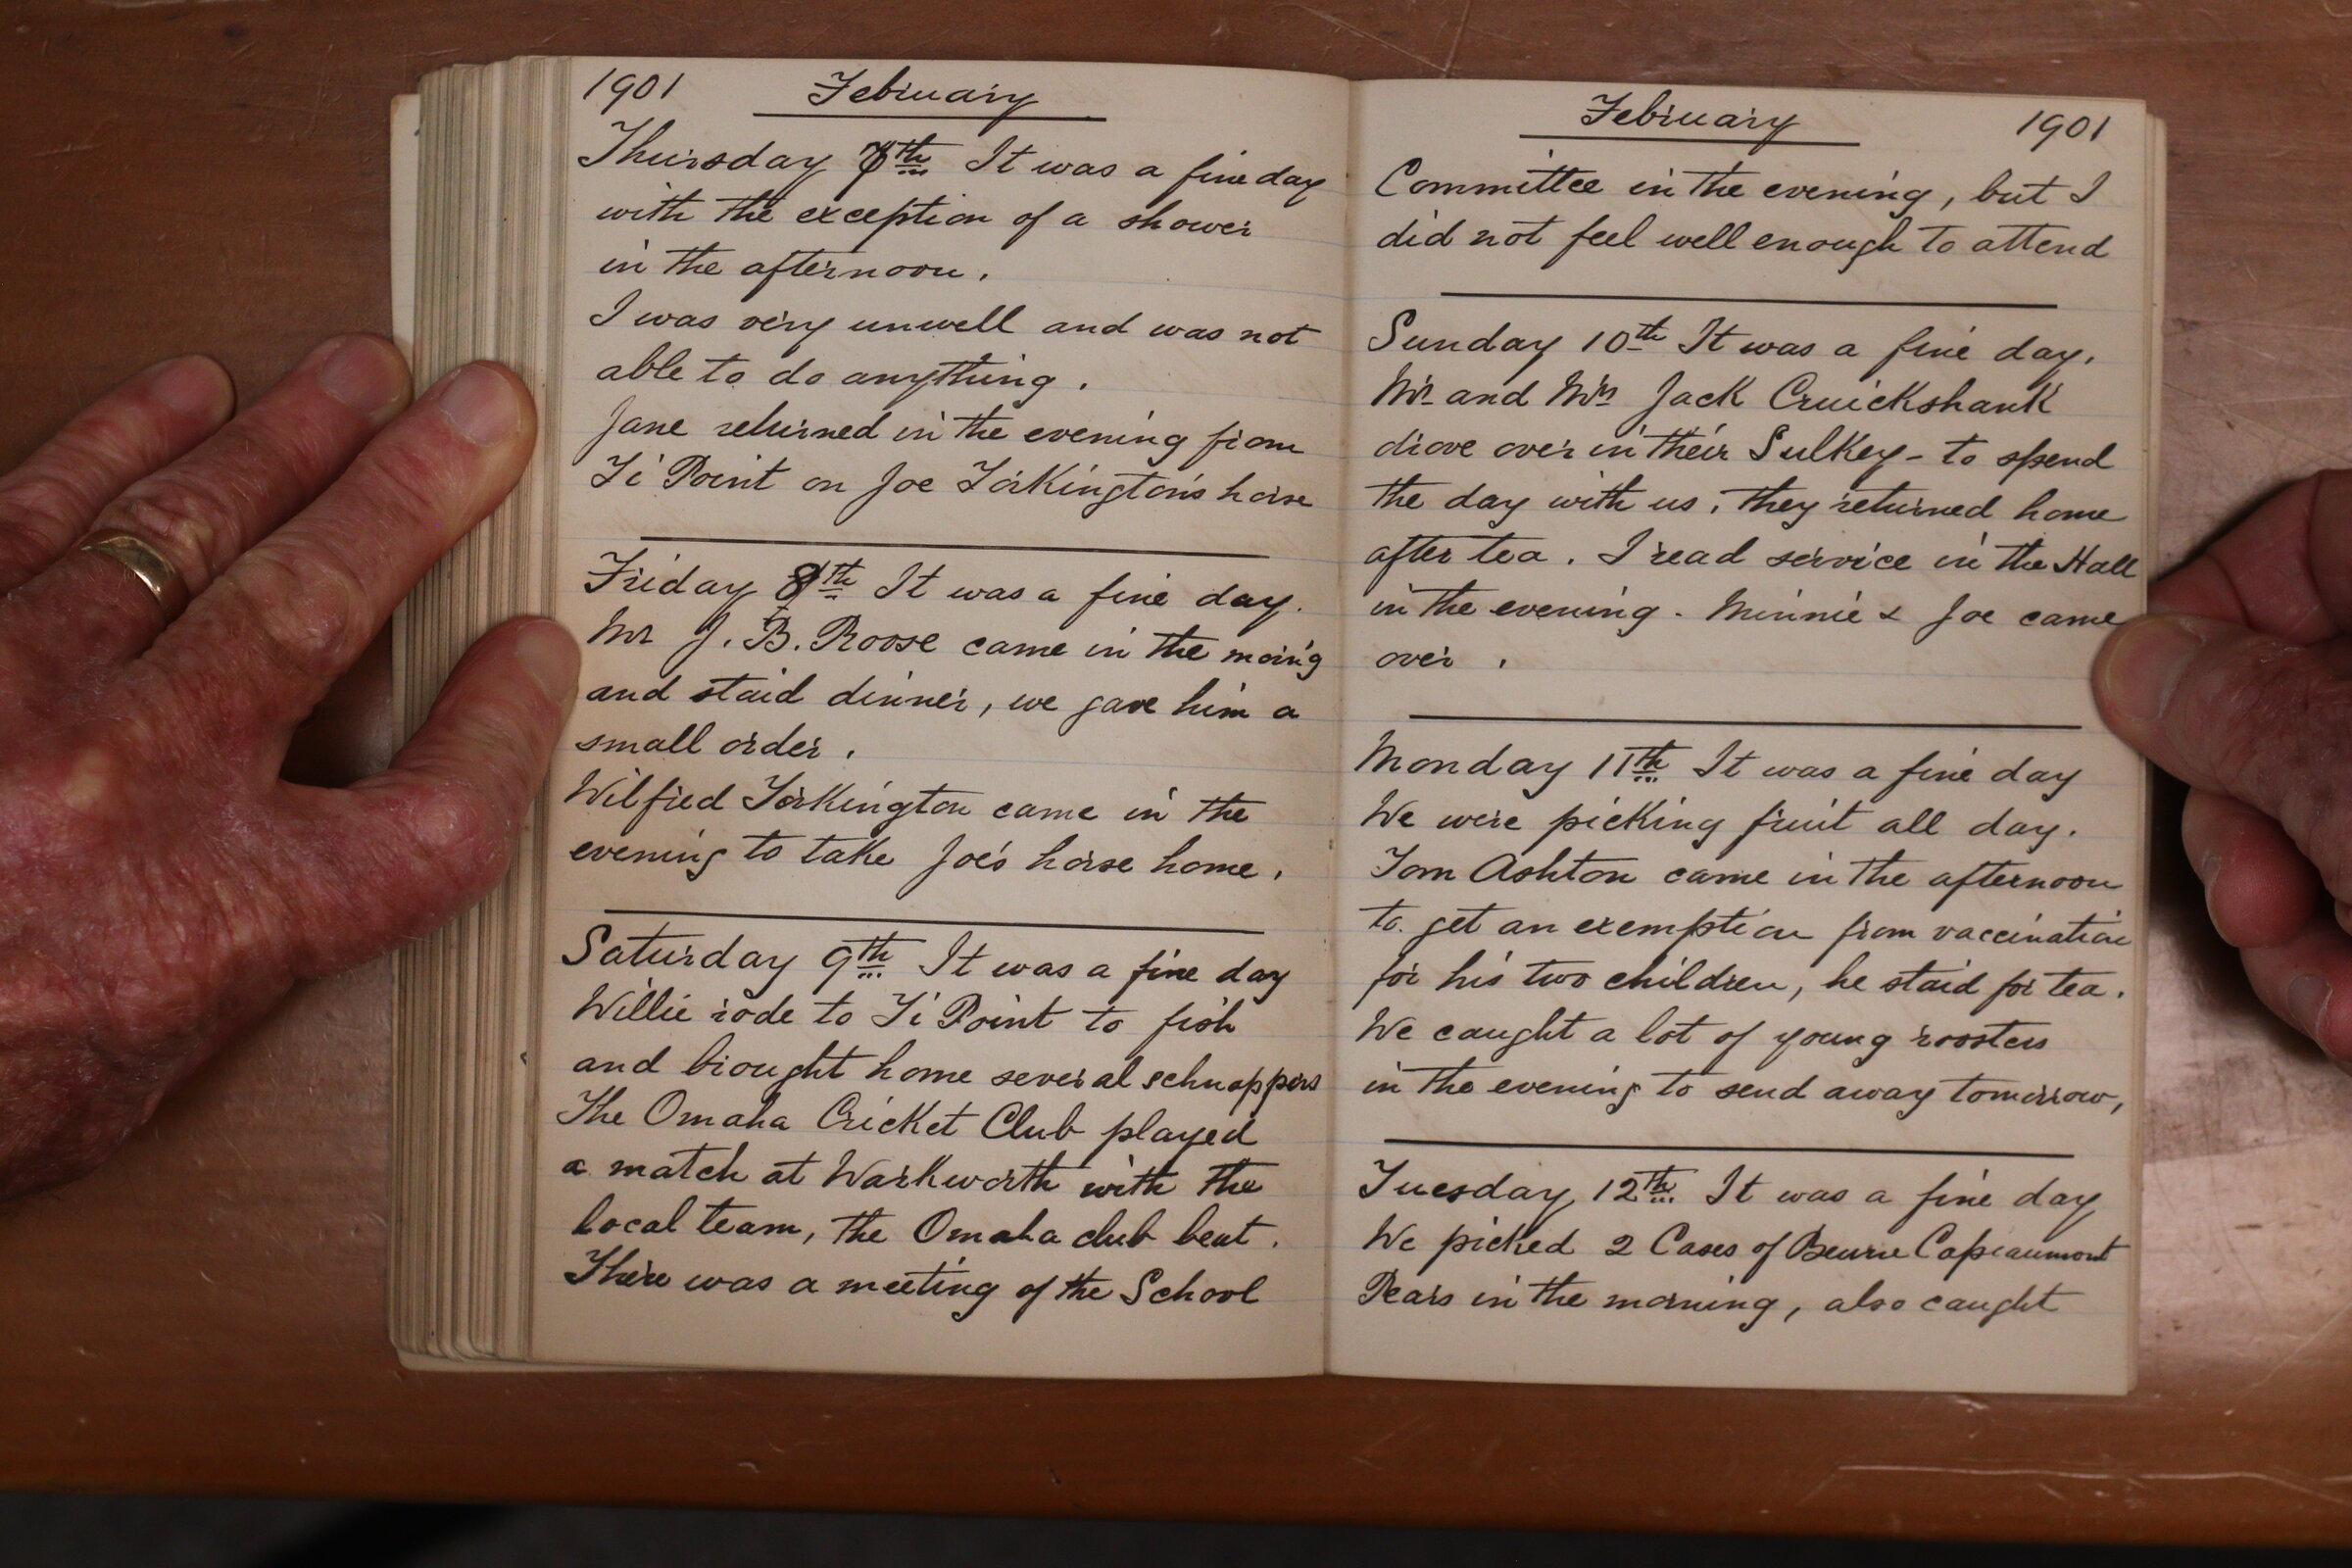 1901 February
Thursday 7th It was a fine day
with the exception of a shower
in the afternoon.
I was very unwell and was not
able to do anything.
Jane returned in the evening from
Ti Point on Joe Torkington's horse
Friday 8th It was a fine day.
Mr J. B. Roose came in the morn'g
and staid dinner, we gave him a
small order.
Wilfred Torkington came in the
evening to take Joe's horse home.
Saturday 9th It was a fine day
Willie rode to Ti Point to fish
and brought home several schnappers
The Omaha Cricket Club played
a match at Warkworth with the
local team, the Omaha club beat.
There was a meeting of the School
February 1901
Committee in the evening, but I
did not feel well enough to attend
Sunday 10th It was a fine day.
Mr and Mrs Jack Cruickshank
drove over in their Sulkey - to spend
the day with us, they returned home
after tea. I read service in the Hall
in the evening - Minnie & Joe came
over.
Monday 11th It was a fine day
We were picking fruit all day.
Tom Ashton came in the afternoon
to get an exemption from vaccination
for his two children, he staid for tea.
We caught a lot of young roosters
in the evening to send away tomorrow,
Tuesday 12th It was a fine day
We picked 2 Cases of Beurre Capiaumont
Pears in the morning, also caught